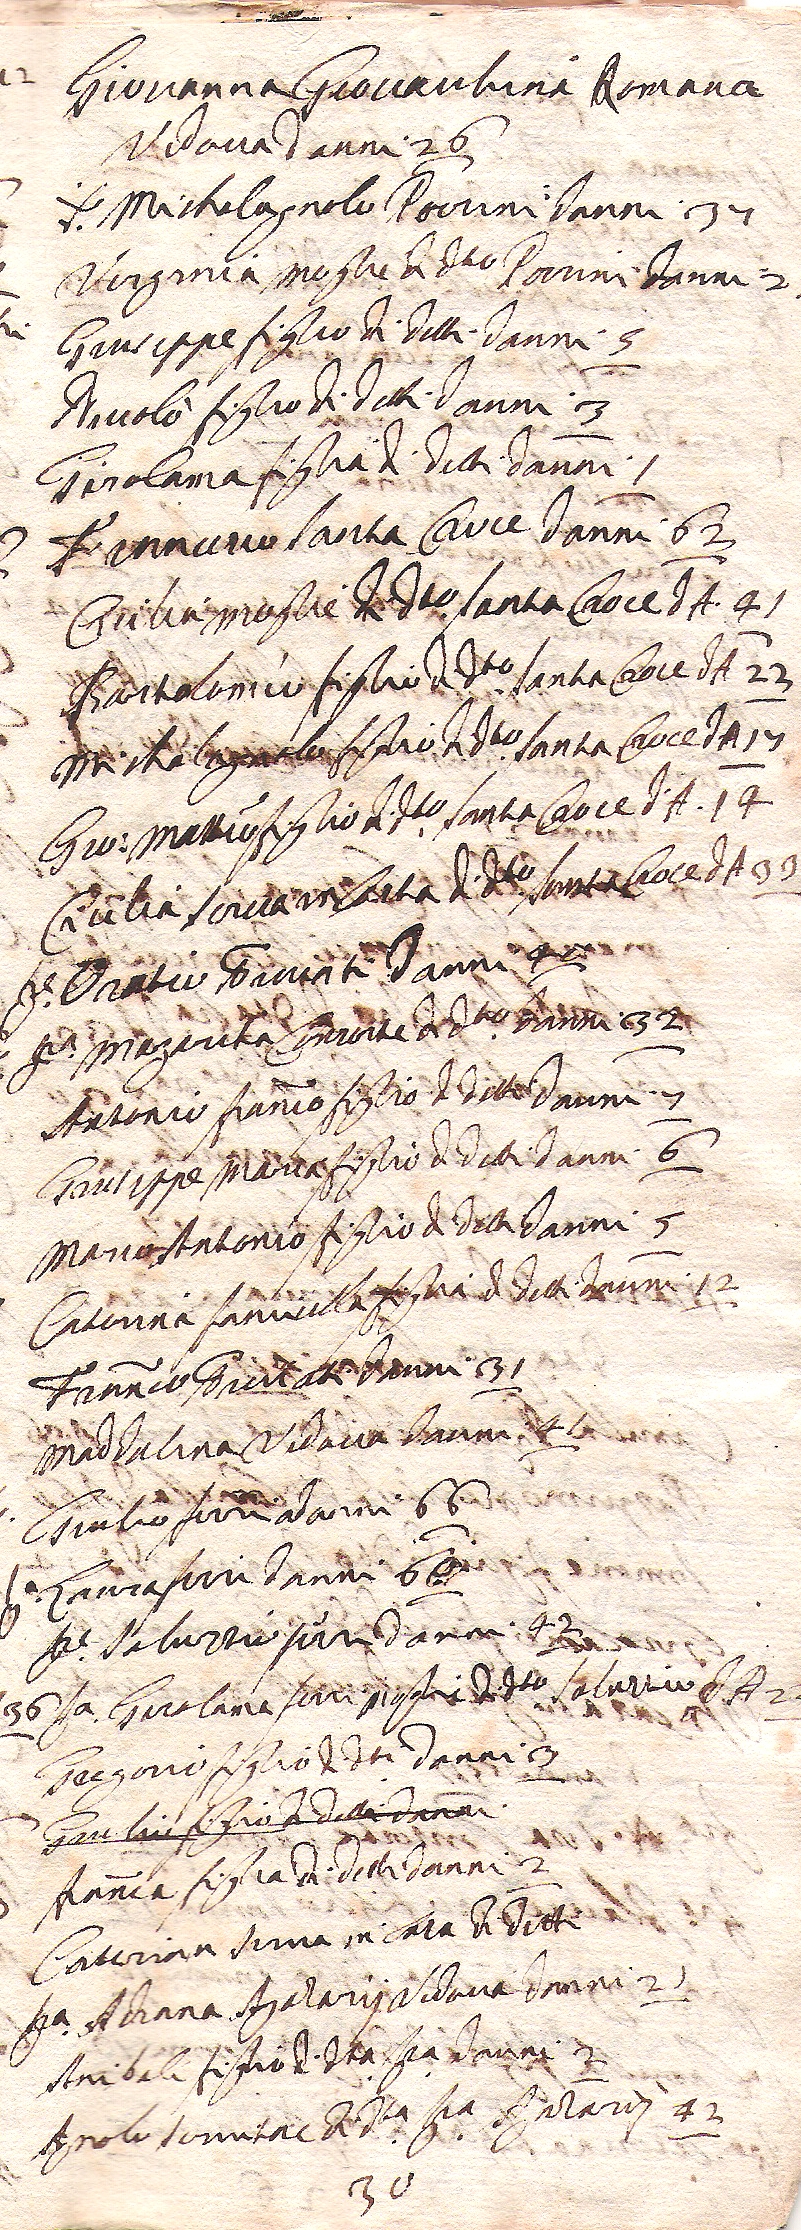 Giovanna Giovacchina Romana
Vedova d anni 26
Michelagnolo Pocrini danni 37
Verginia moglie di dto Pocrini danni 2
Giuseppe figlio di detti danni 5
Nicolò figlio di detti danni 3
Girolama figlia di detti danni 1
Francesco Santa Croce danni 62
Cecilia moglie di dto Santa Croce d A. 41
Bartolomeo figlio di dto Santa Croce d A 22
Michelagnolo figlio di dto Santa Croce d A 17
Gio: Matteo figlio di dto Santa Croce d A. 14
Cecilia in Casa di dto Santa Croce d A 33
Sr. Oratio danni 40
Sra. Margarita Consorte di dto danni 32
Antonio Franco figlio di detti danni 7
Giuseppe Maria figlio di detti danni 6
Marco Antonio figlio di detti danni 5
Caterina figlia di detti danni 12
Franco danni 31
Maddalena Vedova danni 41
Giulio danni 66
Sra. Laura danni 60
Sr. Saluzzio danni 42
36 Sra. Girolama moglie di dto Saluzzio d A 2
Gregorio figlio di dti danni 3
Giulio figlio di detti danni
Franca figlia di detti danni 2
Caterina serva in casa di detti
Sra. Adriana Vedova danni 21
Anibale figlio di dta Sra danni 2
Agnolo servitore di dta Sra. 42
30